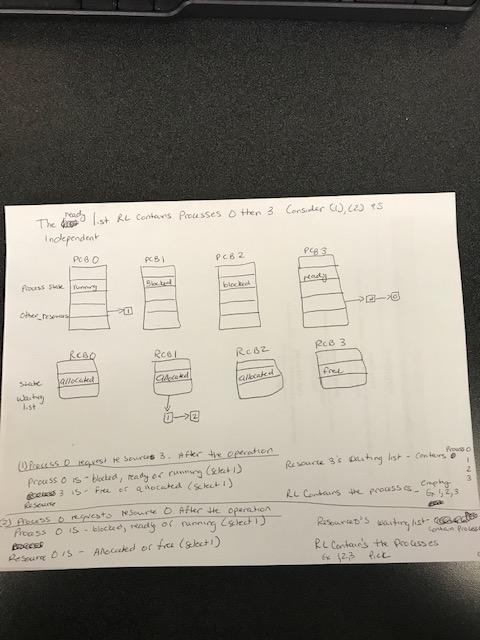 The ready list RL Contains Processes 0 then 3. Consider (1), (2) as
Independent
PCB0 PCB1 PCB2 PCB3
Process State running Blocked blocked ready
Other_resources 1 2 0
RCB0 RCB1 RCB2 RCB 3
State allocated allocated allocated free
Waiting
list
1 2
(1) Process 0 request resource 3. After the operation
Process 0 is - blocked, ready or running (select 1)
Resource 3 is - free or allocated (select 1)
Resource 3's waiting list - contains Process 0
1
2
3
RL Contains the processes - Empty
0, 1, 2, 3
(2) Process 0 requests resource 0. After the operation
Process 0 is - blocked, ready or running (select 1)
Resource 0 is - Allocated or free (select 1)
waiting list - Contain Process
RL Contain's the Processes
Ex 1,2,3 Pick